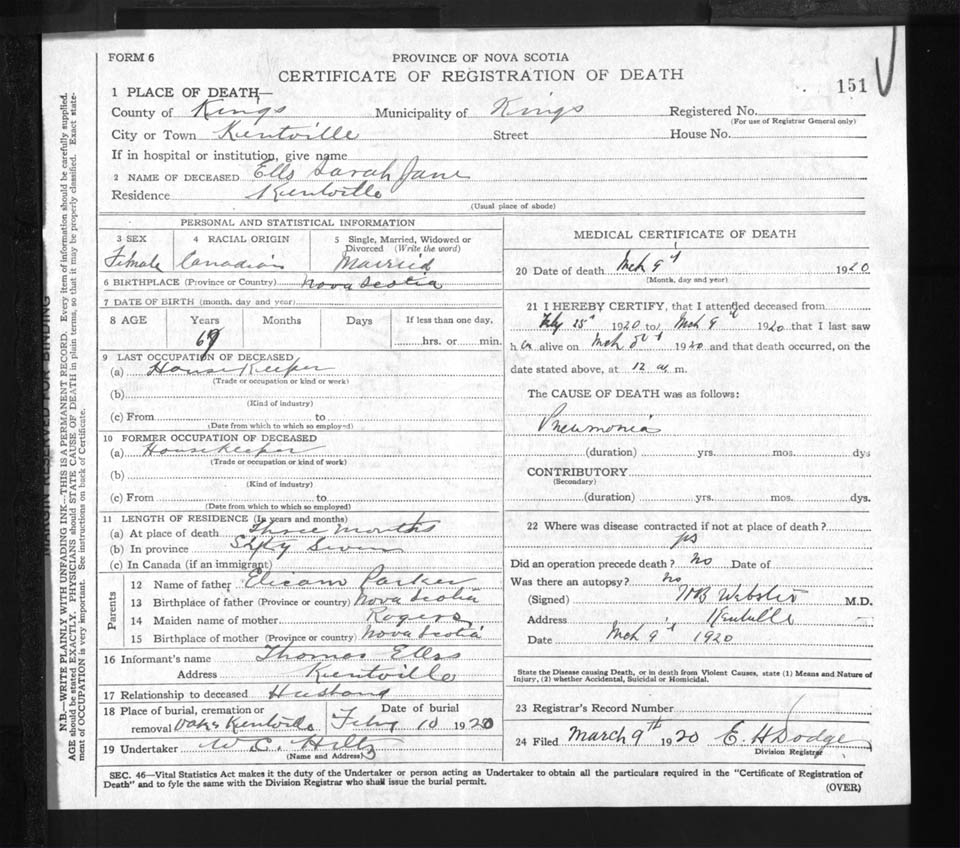 FORM 6
PROVINCE OF NOVA SCOTIA
CERTIFICATE OF REGISTRATION OF DEATH
151
1 PLACE OF DEATH—
County of Kings Municipality of Kings Registered No.
(For use of Registrar General only)
City or Town Kentville Street House No.
If in hospital or institution, give name
2 NAME OF DECEASED Ells Sarah Jane
Residence Kentville
(Usual place of abode)
PERSONAL AND STATISTICAL INFORMATION
3 SEX 4 RACIAL ORIGIN 5 Single, Married, Widowed or
Divorced (Write the word)
Female Canadian Married
6 BIRTHPLACE (Province or Country) Nova Scotia
7 DATE OF BIRTH (month, day and year)
8 AGE Years Months Days If less than one day,
67 hrs. or min.
9 LAST OCCUPATION OF DECEASED
(a) House Keeper
(Trade or occupation or kind or work)
(b)
(Kind of industry)
(c) From to
(Date from which to which so employed)
10 FORMER OCCUPATION OF DECEASED
(a) Housekeeper
(Trade or occupation or kind of work)
(b)
(Kind of industry)
(c) From to
(Date from which to which so employed)
11 LENGTH OF RESIDENCE (In years and months)
(a) At place of death Three Months
(b) In province Sixty Seven
(c) In Canada (if an immigrant)
Parents
12 Name of father Parker
13 Birthplace of father (Province or country) Nova Scotia
14 Maiden name of mother Rogers
15 Birthplace of mother (Province or country) Nova Scotia
16 Informant's name Thomas Ells
Address Kentville
17 Relationship to deceased Husband
18 Place of burial, cremation or Date of burial
removal Oaks Kentville Feby 10 1920
19 Undertaker W. C. Hiltz
(Name and Address)
MEDICAL CERTIFICATE OF DEATH
20 Date of death Mch 9th 1920
(Month, day and year)
21 I HEREBY CERTIFY, that I attended deceased from
Feby 25th 1920 to Mch 9th 1920 that I last saw
h er alive on Mch 8th 1920 and that death occurred, on the
date stated above, at 12 a m.
The CAUSE OF DEATH was as follows:
Pneumonia
(duration) yrs. mos. dys
CONTRIBUTORY
(Secondary)
(duration) yrs. mos. dys.
22 Where was disease contracted if not at place of death?
Did an operation precede death? No Date of
Was there an autopsy? no
(Signed) W B Webster M.D.
Address Kentville
Date Mch 9th 1920
State the Disease causing Death, or in death from Violent Causes, state (1) Means and Nature of
Injury, (2) whether Accidental, Suicidal or Homicidal.
23 Registrar's Record Number
24 Filed March 9th 1920 E. H Dodge
Division Registrar
SEC. 46—Vital Statistics Act makes it the duty of the Undertaker or person acting as Undertaker to obtain all the particulars required in the "Certificate of Registration of
Death" and to fyle the same with the Division Registrar who shall issue the burial permit.
(OVER)
MARGIN RESERVED FOR BINDING
N.B.—WRITE PLAINLY WITH UNFADING INK—THIS IS A PERMANENT RECORD. Every item of information should be carefully supplied.
AGE should be stated EXACTLY. PHYSICIANS should STATE CAUSE OF DEATH in plain terms, so that it may be properly classified. Exact state-
ment of OCCUPATION is very important. See instructions on back of Certificate.